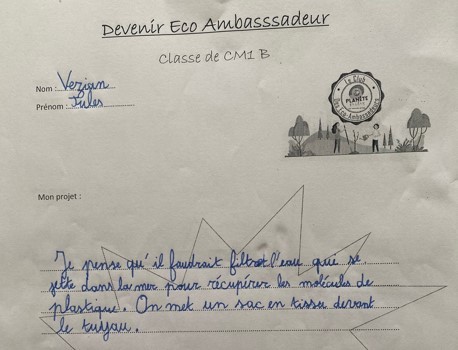 Devenir Eco Ambasssadeur
Classe de CM1 B
Nom : Vezian
Prénom : Jules
Le Club
PLANÈTE
Des Eco Ambassadeurs
Mon projet :
Je pense qu'il faudrait filtrer l'eau qui se
jette dans la mer pour récupérer les molécules de
plastique. On met un sac en tissu devant
le tuyau.